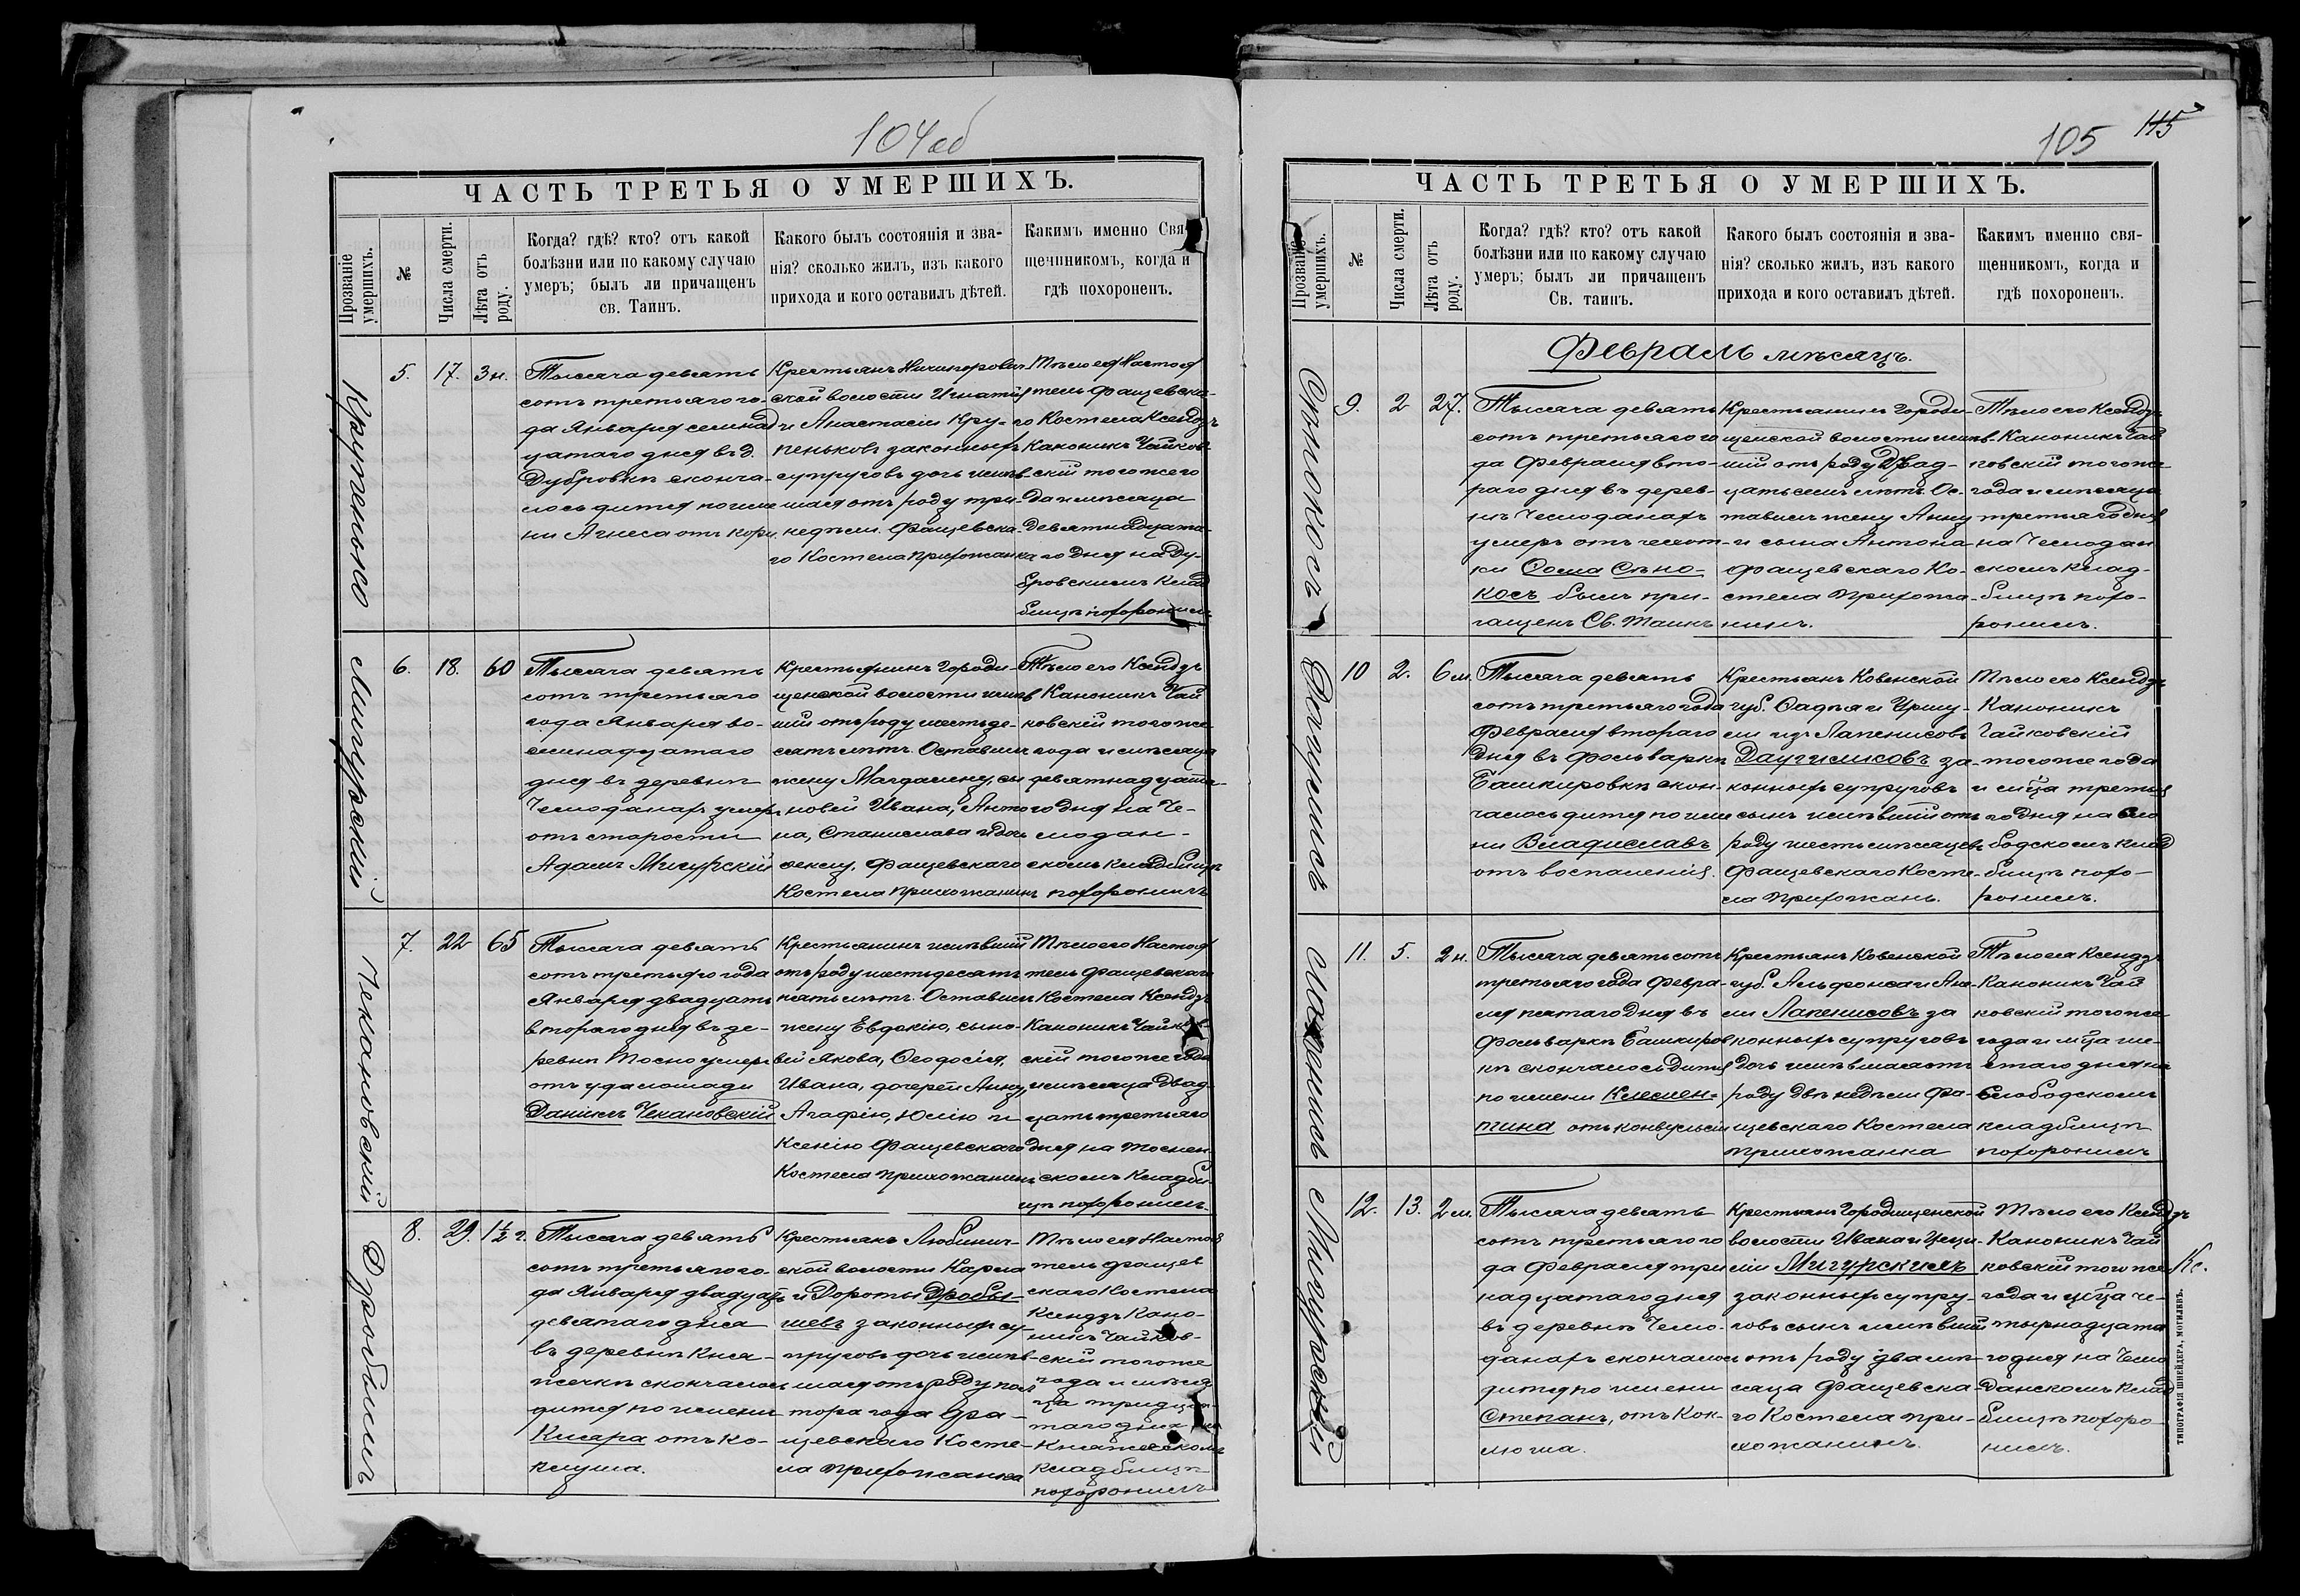 104об
ЧАСТЬ ТРЕТЬЯ О УМЕРШИХЪ.
Прозваніе умершихъ.
№
Числа смерти.
Лѣта отъ роду.
Когда? гдѣ? кто? отъ какой
болѣзни или по какому случаю
умеръ; былъ ли причащенъ
св. Таинъ.
Какого былъ состоянія и зва-
нія? сколько жилъ, изъ какого
прихода и кого оставилъ дѣтей.
Какимъ именно Свя-
щенникомъ, когда и
гдѣ похороненъ.
Крупенько
5.
17.
3 н.
Тысяча девять
сотъ третьяго го-
да Января семнад
цатаго дня въ д.
Дубровкѣ сконча-
лось дитя по име
ни Агнеса отъ кори.
Крестьянъ
ской волости Игнатія
и Анастасіи Кру-
пеньковъ законныхъ
супруговъ дочь жив-
шая отъ роду три
недѣли. Фащевска-
го Костела прихожанка
Тѣло ея Настоя
тель Фащевска-
го Костела Ксендзъ
Каноникъ Чайков-
скій того же го
да и мѣсяца
девятнадцата-
го дня на Ду-
бровскомъ клад
бищѣ похоронилъ
Мигурскій
6.
18.
60
Тысяча девять
сотъ третьяго
года Января во-
семнадцатаго
дня въ деревнѣ
Чемоданахъ умеръ
отъ старости
Адамъ Мигурскій
Крестьянинъ Городи-
щенской волости жив
шій отъ роду шестьде-
сятъ лѣтъ. Оставилъ
жену Магдалену, сы
новей Ивана, Анто
на, Станислава и дочь
Фащевскаго
Костела прихожанинъ
Тѣло его Ксендзъ
Каноникъ Чай
ковскій того же
года и мѣсяца
девятнадцата-
го дня на Че-
модан-
скомъ кладбищѣ
похоронилъ
Чекановскій
7.
22
65
Тысяча девять
сотъ третьяго года
Января двадцать
втораго дня въ де-
ревнѣ Тосно умеръ
отъ удалошади
Даніилъ Чекановскій
Крестьянинъ жившій
отъ роду шестьдесятъ
пять лѣтъ. Оставилъ
жену Евдокію, сыно-
вей Якова, Ѳеодосія,
Ивана, дочерей Анну,
Агафію, Юлію и
Ксенію Фащевскаго
Костела прихожанинъ
Тѣло его Настоя
тель Фащевскаго
Костела Ксендзъ
Каноникъ Чайков-
скій того же года
и мѣсяца двад-
цать третьяго
дня на Тоснен-
скомъ кладби-
щѣ похоронилъ.
Дробышъ
8.
29.
1½ г.
Тысяча девять
сотъ третьяго го-
да Января двадцать
девятаго дня
въ деревнѣ Кня-
жечкѣ скончалось
дитя по имени
Клара отъ ко-
клуша.
Крестьянъ Любинич-
ской волости Карла
и Дороты Дробы-
шевъ законныхъ су-
пруговъ дочь жив-
шая отъ роду пол
тора года Фа-
щевскаго Косте-
ла прихожанка
Тѣло ея Настоя
тель Фащев
скаго Костела
Ксендзъ Кано-
никъ Чайков-
скій того же
года и мѣся
ца тридца-
таго дня на
Княжескомъ
кладбищѣ
похоронилъ
105
115
ЧАСТЬ ТРЕТЬЯ О УМЕРШИХЪ.
Прозваніе умершихъ.
№
Числа смерти.
Лѣта отъ роду.
Когда? гдѣ? кто? отъ какой
болѣзни или по какому случаю
умеръ; былъ ли причащенъ
Св. таинъ.
Какого былъ состоянія и зва-
нія? сколько жилъ, изъ какого
прихода и кого оставилъ дѣтей.
Какимъ именно свя-
щенникомъ, когда и
гдѣ похороненъ.
Февраль мѣсяцъ.
Сѣнокосъ
9.
2
27.
Тысяча девять
сотъ третьяго го
да Февраля вто-
раго дня въ дерев-
нѣ Чемоданахъ
умеръ отъ чахот-
ки Ѳома Сѣно-
косъ былъ при-
чащенъ Св. Таинъ
Крестьянинъ Городи-
щенской волости жив-
шій отъ роду двад-
цать семь лѣтъ. Ос-
тавилъ жену Анну
и сына Антона
Фащевскаго Ко-
стела прихожа-
нинъ.
Тѣло его Ксендзъ
Каноникъ Чай
ковскій того же
года и мѣсяца
третьяго дня
на Чемодан
скомъ клад-
бищѣ похо-
ронилъ.
10
2.
6 м.
Тысяча девять
сотъ третьяго года
Февраля втораго
дня въ фольваркѣ
Башкировкѣ скон-
чалось дитя по име
ни Владиславъ
отъ воспаленія.
Крестьянъ Ковенской
губ. Фадея и Уршу-
ли изъ Лапенисовъ
Даугилисовъ за-
конныхъ супруговъ
сынъ жившій отъ
роду шесть мѣсяцевъ
Фащевскаго Косте-
ла прихожанъ.
Тѣло его Ксендзъ
Каноникъ
Чайковскій
того же года
и м-ца третья
го дня на Сло
бодскомъ клад
бищѣ похо-
ронилъ.
Лапенисъ
11.
5.
2 н.
Тысяча девять сотъ
третьяго года Февра-
ля пятаго дня въ
фольваркѣ Башкиров
кѣ скончалось дитя
по имени Клемен-
тина отъ конвульсіи
Крестьянъ Ковенской
губ. Альфонса и Ане-
ли Лапенисовъ за
конныхъ супруговъ
дочь жившая отъ
роду двѣ недѣли Фа-
щевскаго Костела
прихожанка
Тѣло ея Ксендзъ
Каноникъ Чай
ковскій того же
года и м-ца ше-
стаго дня на
Слободскомъ
кладбищѣ
похоронилъ
Мигурскій
12.
13.
2 м.
Тысяча девять
сотъ третьяго го
да Февраля три
надцатаго дня
въ деревнѣ Чемо-
данахъ скончалось
дитя по имени
Степанъ, отъ кок-
люша.
Крестьянъ Городищенской
волости Ивана и Цеци-
ліи Мигурскихъ
законныхъ супру-
говъ сынъ жившій
отъ роду два мѣ-
сяца Фащевска-
го Костела при-
хожанинъ.
Тѣло его Ксендзъ
Каноникъ Чай
ковскій того же
года и м-ца че-
тырнадцата
го дня на Чемо
данскомъ клад
бищѣ похоро-
нилъ.
Кс.
ТИПОГРАФІЯ ШНЕЙДЕРА, МОГИЛЕВЪ.